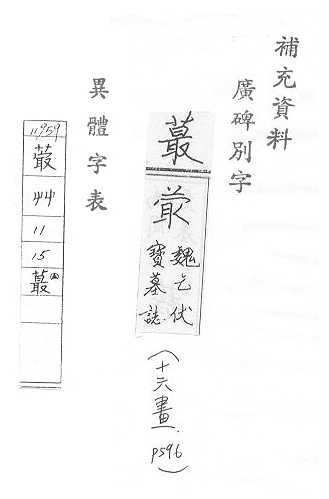 補充資料
廣碑別字
蕞
魏乞伏
寶墓誌
(十六畫.
p596)
異體字表
11959
艸
11
15
蕞